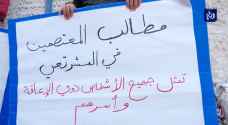 مطالب المعتصمين
في المستوصي
تمثل جميع الأشخاص ذوي الإعاقة
وأسرهم
رؤيا